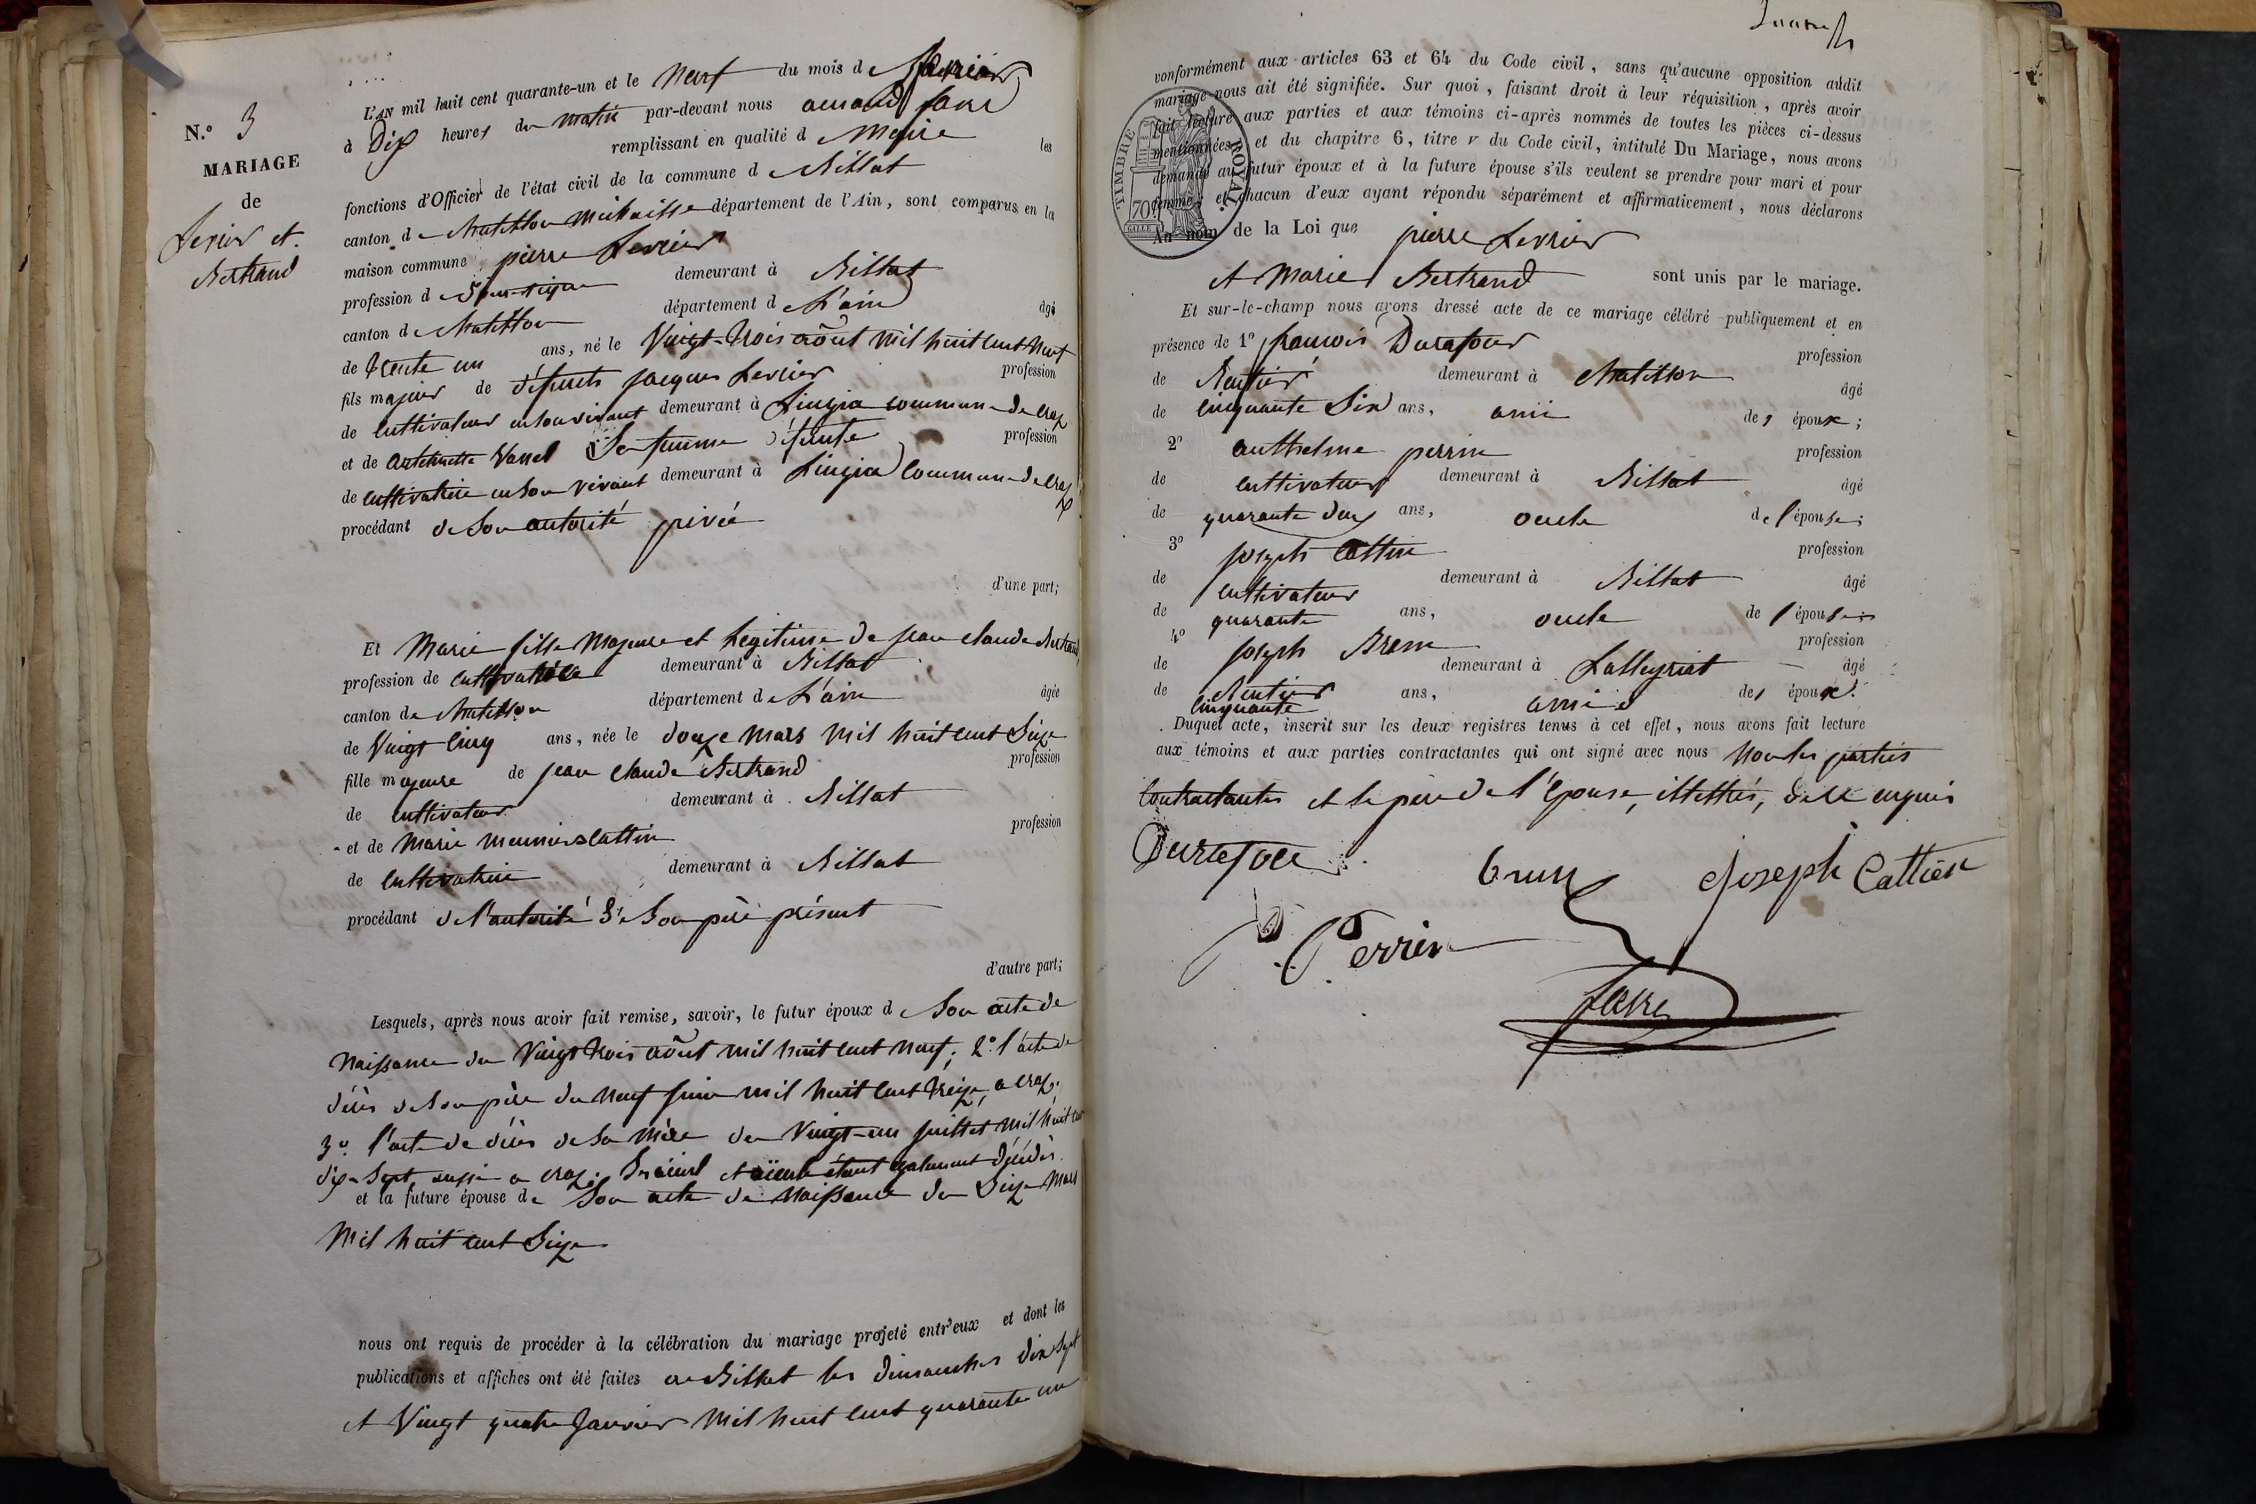 N.º 3
MARIAGE
de
Levrier et
Bertrand
L'AN mil huit cent quarante-un et le neuf du mois de février
à Dix heures du matin par-devant nous armand favre
remplissant en qualité de Maire les
fonctions d'Officier de l'état civil de la commune de Billiat
canton de Chatillon Michaille département de l'Ain, sont comparus en la
maison commune, pierre Levrier
profession de demeurant à Billiat
canton de Chatillon département de L'ain âgé
de trente un ans, né le Vingt-trois août mil huit cent neuf
fils majeur de défunts jacques Levrier profession
de cultivateur en son vivant demeurant à Lingia commune de Craz
et de antoinette Vassel Sa femme défunte profession
de cultivatrice en son vivant demeurant à Lingia commune de Craz
procédant de Son autorité privée
d'une part;
Et Marie fille Majeure et Legitime de jean claude Bertrand,
profession de cultivatrice demeurant à Billiat
canton de Chatillon département de L'ain âgée
de Vingt cinq ans, née le douze mars mil huit cent Seize
fille majeure de jean claude Bertrand profession
de cultivateur demeurant à Billiat
et de Marie meunier cattin profession
de cultivatrice demeurant à Billiat
procédant de l'autorité de Son père présent
d'autre part;
Lesquels, après nous avoir fait remise, savoir, le futur époux de Son acte de
Naissance du Vingt trois août mil huit cent neuf; 2º l'acte de
décès de Son père du neuf juin mil huit cent treize, a craz;
3º l'acte de décès de Sa mère du Vingt-un juillet mil huit cent
dix-Sept, aussi a craz; Ses aïeul et aïeule étant egalement décédés.
et la future épouse de Son acte de Naissance du Seize Mars
Mil huit cent Seize
nous ont requis de procéder à la célébration du mariage projeté entr'eux et dont les
publications et affiches ont été faites a Billiat les dimanches dix Sept
et Vingt quatre Janvier Mil huit cent quarante un
conformément aux articles 63 et 64 du Code civil, sans qu'aucune opposition audit
mariage nous ait été signifiée. Sur quoi, faisant droit à leur réquisition, après avoir
fait lecture aux parties et aux témoins ci-après nommés de toutes les pièces ci-dessus
mentionnées, et du chapitre 6, titre V du Code civil, intitulé Du Mariage, nous avons
demandé au futur époux et à la future épouse s'ils veulent se prendre pour mari et pour
femme; et chacun d'eux ayant répondu séparément et affirmativement, nous déclarons
Au nom de la Loi que pierre Levrier
TIMBRE ROYAL
70
et Marie Bertrand sont unis par le mariage.
Et sur-le-champ nous avons dressé acte de ce mariage célébré publiquement et en
présence de 1º françois Durafour profession
de Rentier demeurant à Chatillon âgé
de cinquante Six ans, ami des époux;
2º anthelme perrin profession
de cultivateur demeurant à Billiat âgé
de quarante deux ans, oncle de l'épouse;
3º joseph Cattin profession
de cultivateur demeurant à Billiat âgé
de quarante ans, oncle de l'épouse
4º joseph Brun profession
de Rentier demeurant à Lalleyriat âgé
de cinquante ans, ami des époux.
Duquel acte, inscrit sur les deux registres tenus à cet effet, nous avons fait lecture
aux témoins et aux parties contractantes qui ont signé avec nous Non les parties
Contractantes et le père de l'épouse, illettrés, de ce enquis
Durafour brun Joseph Cattien
Perrin
favre